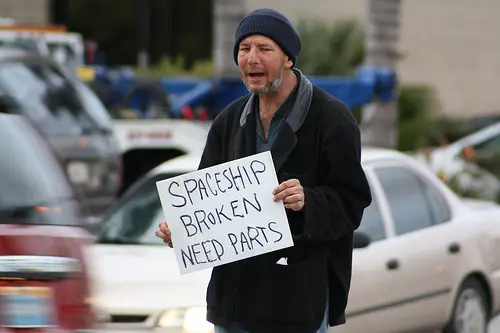 SPACESHIP
BROKEN
NEED PARTS